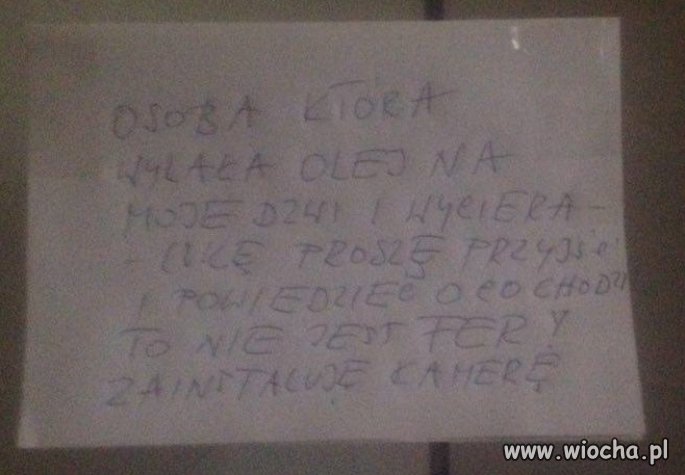 OSOBA KTÓRA
WYLAŁA OLEJ NA
MOJE DZWI I WYCIERA-
PROSZĘ PRZYJŚĆ
I POWIEDZIEĆ O CO CHODZI
TO NIE JEST FER
ZAINSTALUJĘ KAMERĘ
www.wiocha.pl